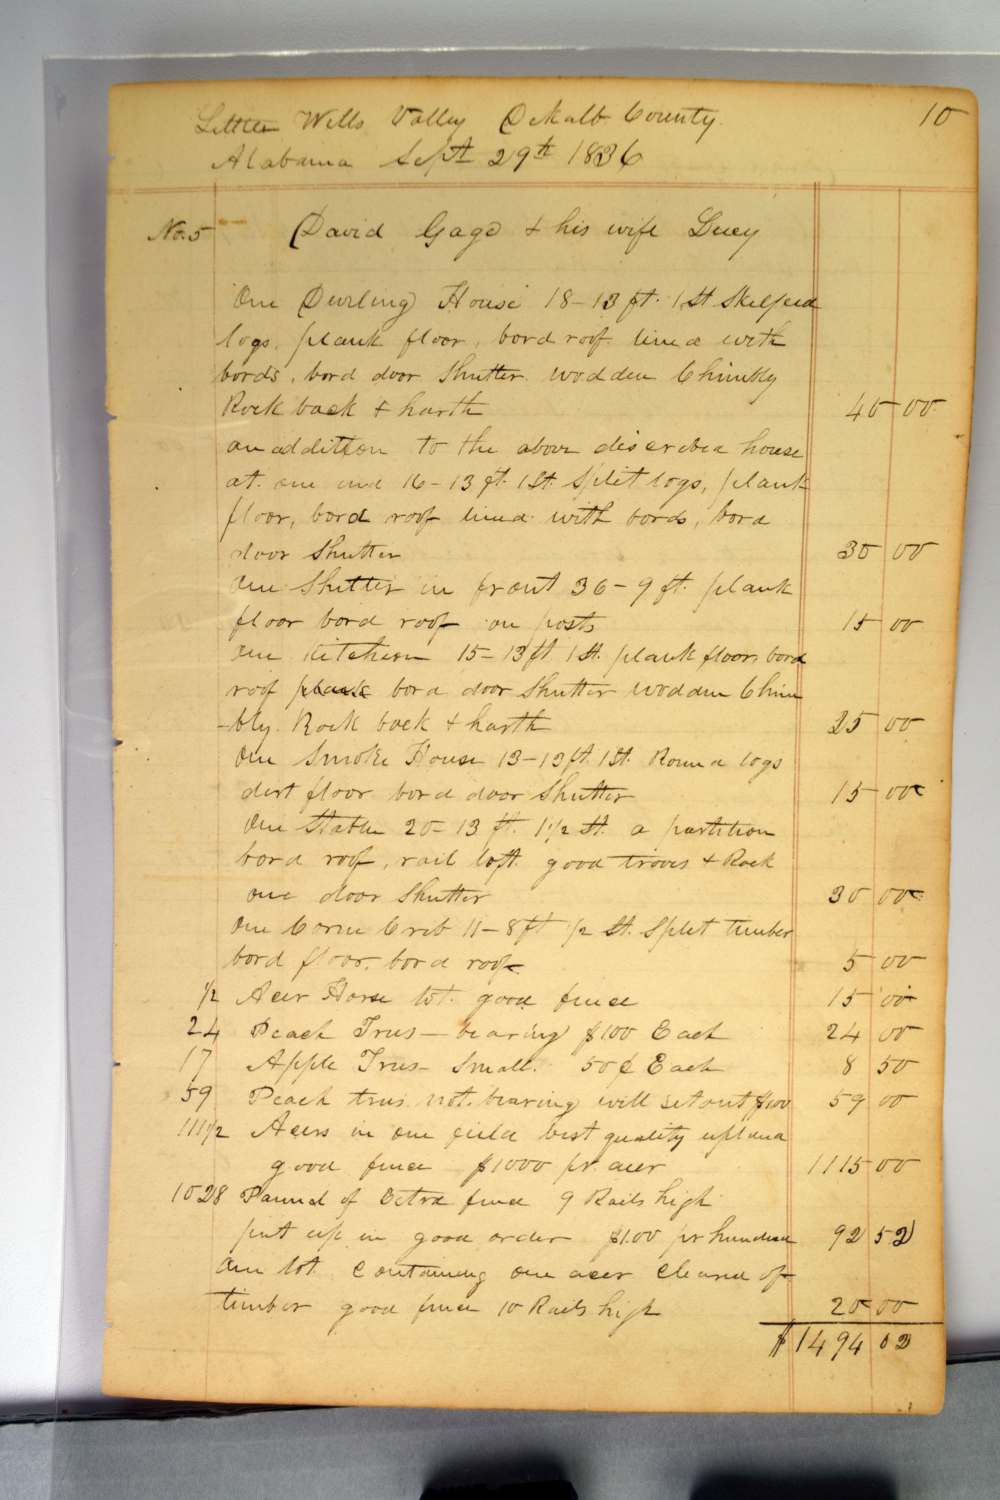 10
Little Wills Valley DeKalb County
Alabama Sept 29th 1836
No. 5 David Gage & his wife Lucy
One Dwelling House 18-13 ft. 1 St Skelped
logs, plank floor, bord roof lined with
bords, bord door Shutter wodden Chimbly
Rock back & harth 40 00
an addition to the above discribed house
at one end 16-13 ft. 1 St. Split logs, plank
floor, bord roof lined with bords, bord
door Shutter 30 00
One Shetter in front 36-9 ft. plank
floor bord roof on posts 15 00
One Kitchen 15-13 ft 1 St. plank floor, bord
roof plank bord door Shutter wodden Chim
-bly. Rock back & harth 25 00
One Smoke House 13-13 ft. 1 St. Round logs
dirt floor bord door Shutter 15 00
One Stable 20-13 ft. 1 1/2 St. a partition
bord roof, rail loft. good troves & Rack
one door Shutter 30 00
One Corn Crib 11-8 ft 1/2 St. Split timber
bord floor, bord roof. 5 00
1/2 Acer Horse lot. good fence 15 00
24 Peach Trees - bearing $100 Each 24 00
17 Apple Trees - Small. 50¢ Each 8 50
59 Peach trees not bearing will set out $100 59 00
111 1/2 Acers in one field best quality upland
good fence $1000 pr acer 1115 00
1028 Pannel of Extra fence 9 Rails high
put up in good order $1.00 pr hundred 92 52
One lot Containing one acer Cleard of
timber good fence 10 Rails high 20 00
$1494 02